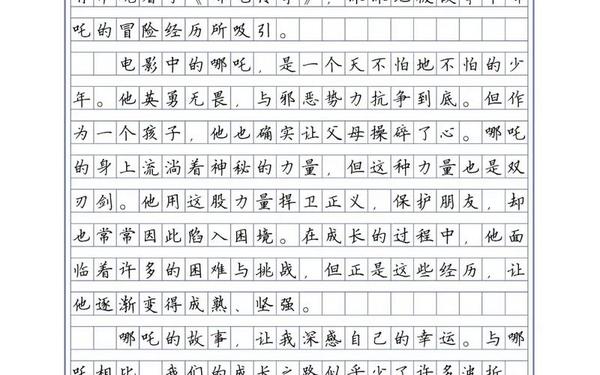 吒的冒险经历所吸引。
电影中的哪吒，是一个天不怕地不怕的少
年。他英勇无畏，与邪恶势力抗争到底。但作
为一个孩子，他也确实让父母操碎了心。哪吒
的身上流淌着神秘的力量，但这种力量也是双
刃剑。他用这股力量捍卫正义，保护朋友，却
也常常因此陷入困境。在成长的过程中，他面
临着许多的困难与挑战，但正是这些经历，让
他逐渐变得成熟、坚强。
哪吒的故事，让我深感自己的幸运。与哪
吒相比，我们的成长之路似乎少了许多波折，